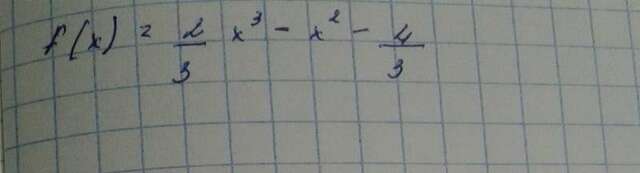 f(x) = 2/3 x³ - x² - 4/3